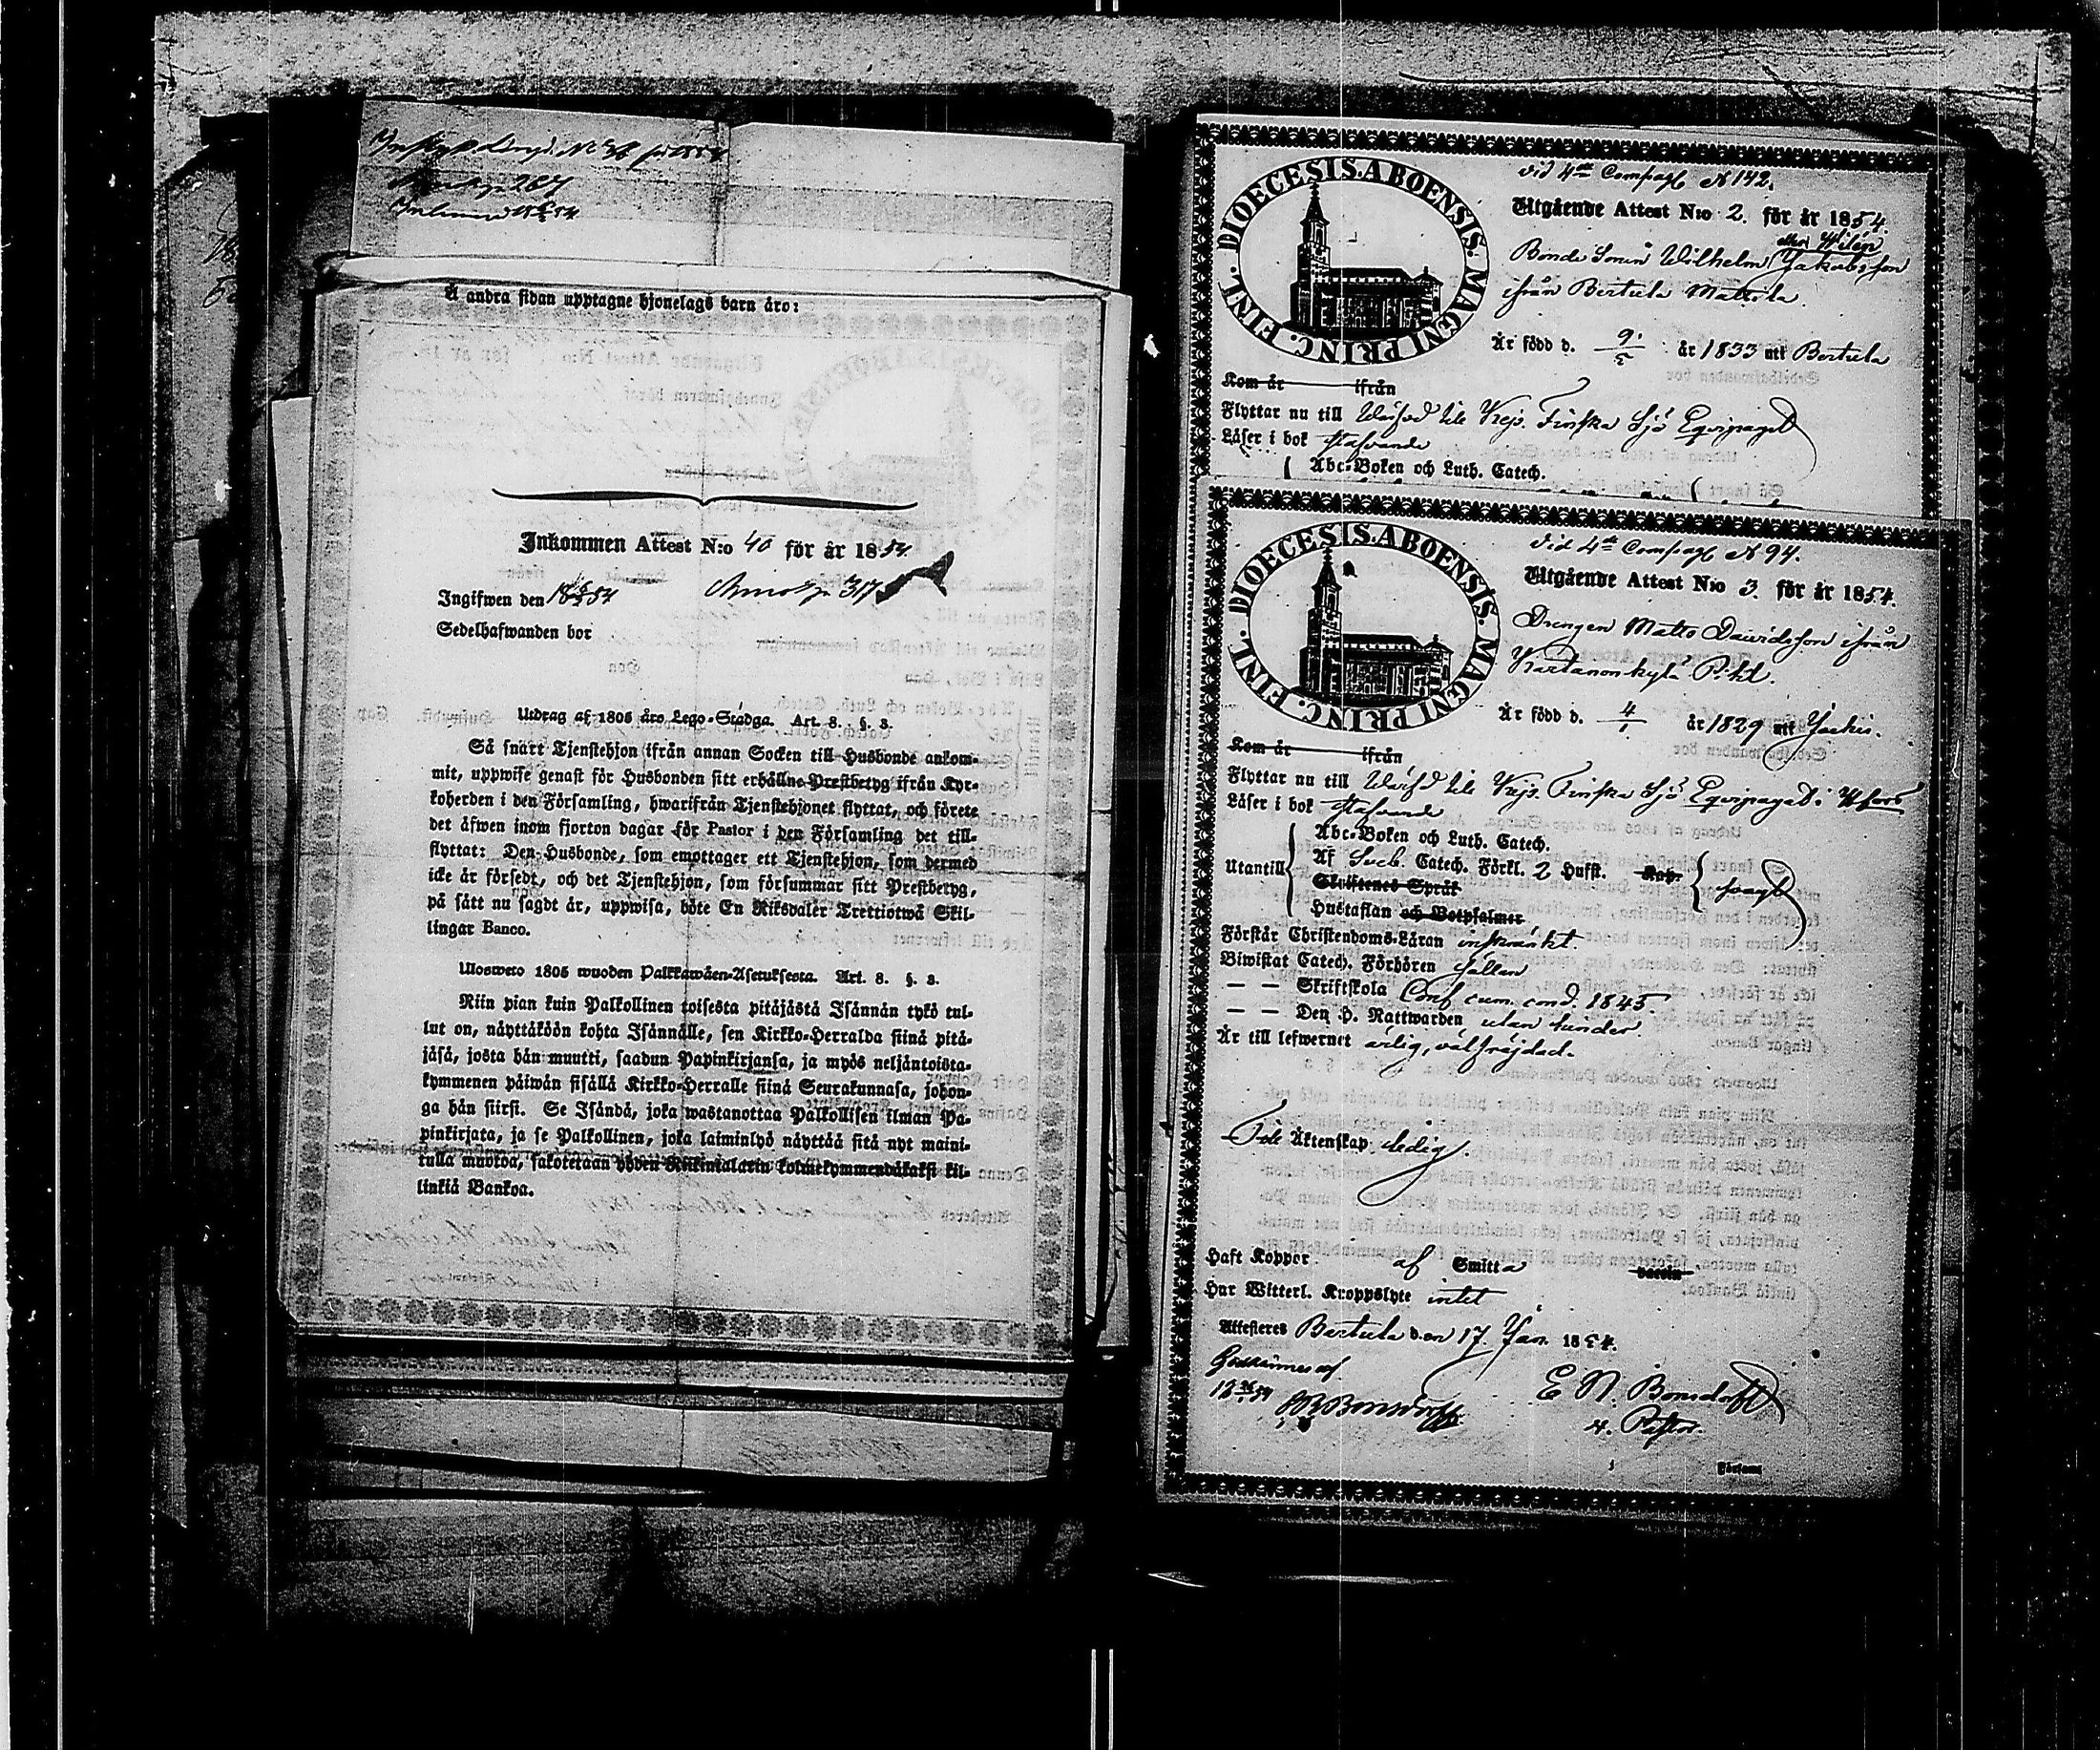 för 1854
267
Å andra sidan upptagne hjonelags barn äro:
Inkommen Attest N:o 40 för år 1854.
Ingifwen den 18 54 317
Sedelhafwanden bor
Utdrag af 1805 års Lego-Stadga. Art. 8. §. 3.
Så snart Tjenstehjon ifrån annan Socken till Husbonde ankom-
mit, uppwise genast för Husbonden sitt erhållne Prestbetyg ifrån Kyr-
koherden i den Församling, hwarifrån Tjenstehjonet flyttat, och förete
det äfwen inom fjorton dagar för Pastor i den Församling det till-
flyttat: Den Husbonde, som emottager ett Tjenstehjon, som dermed
icke är försedt, och det Tjenstehjon, som försummar sitt Prestbetyg,
på sätt nu sagdt är, uppwisa, böte En Riksdaler Trettiotwå Skil-
lingar Banco.
Ulosweto 1805 wuoden Palkkawäen-Asetuksesta. Art. 8. §. 3.
Niin pian kuin Palkollinen toisesta pitäjästä Isännän tykö tul-
lut on, näyttäköön kohta Isännälle, sen Kirkko-Herralda siinä pitä-
jäsä, josta hän muutti, saadun Papinkirjansa, ja myös neljäntoista-
kymmenen päiwän sisällä Kirkko-Herralle siinä Seurakunnasa, johon-
ga hän siirsi. Se Isändä, joka wastanottaa Palkollisen ilman Pa-
pinkirjata, ja se Palkollinen, joka laiminlyö näyttää sitä nyt maini-
tulla muotoa, sakotetaan yhden Riikintalarin kolmekymmendäkaksi kil-
linkiä Bankoa.
DIOECESIS. ABOENSIS. MAGNI PRINC. FINL.
vid 4de Compagt N 142.
Utgående Attest N:o 2. för år 1854.
eller Wilén
Bonde Sonen Wilhelm Jakobsson
ifrån Bertula Mattila.
Är född d. 9/5 år 1833 uti Bertula
Kom år ifrån
Flyttar nu till Wärfvd till Kejs. Finska Sjö Eqvipaget
Läser i bok stafvande
Abc-Boken och Luth. Catech.
DIOECESIS. ABOENSIS. MAGNI PRINC. FINL.
Vid 4de Compagt N 94.
Utgående Attest N:o 3. för år 1854.
Drengen Matts Davidsson ifrån
Kartanonkylä
Är född d. 4/1 år 1829 uti Jockis.
Kom år ifrån
Flyttar nu till Wärfvd till Kejs. Finska Sjö Eqvipaget i Hfors
Läser i bok stafvande
Abc-Boken och Luth. Catech.
Utantill Af Sveb. Catech. Förkl. 2 Hufst. Kap. svagt
Skriftenes Språk
Hustaflan och Botpsalmer
Förstår Christendoms-Läran inskränkt.
Biwistat Catech. Förhören sällan
— — Skriftskola Conf. cum. cond. 1845
— — Den H. Nattwarden utan hinder
Är till lefwernet ärlig, välfrejdad.
Till Äktenskap: ledig.
Haft Koppor af Smitta
Har Witterl. Kroppslyte intet
Attesteres Bertula den 17. Jan. 1854.
E N. Bonsdorff
v. Pastor.